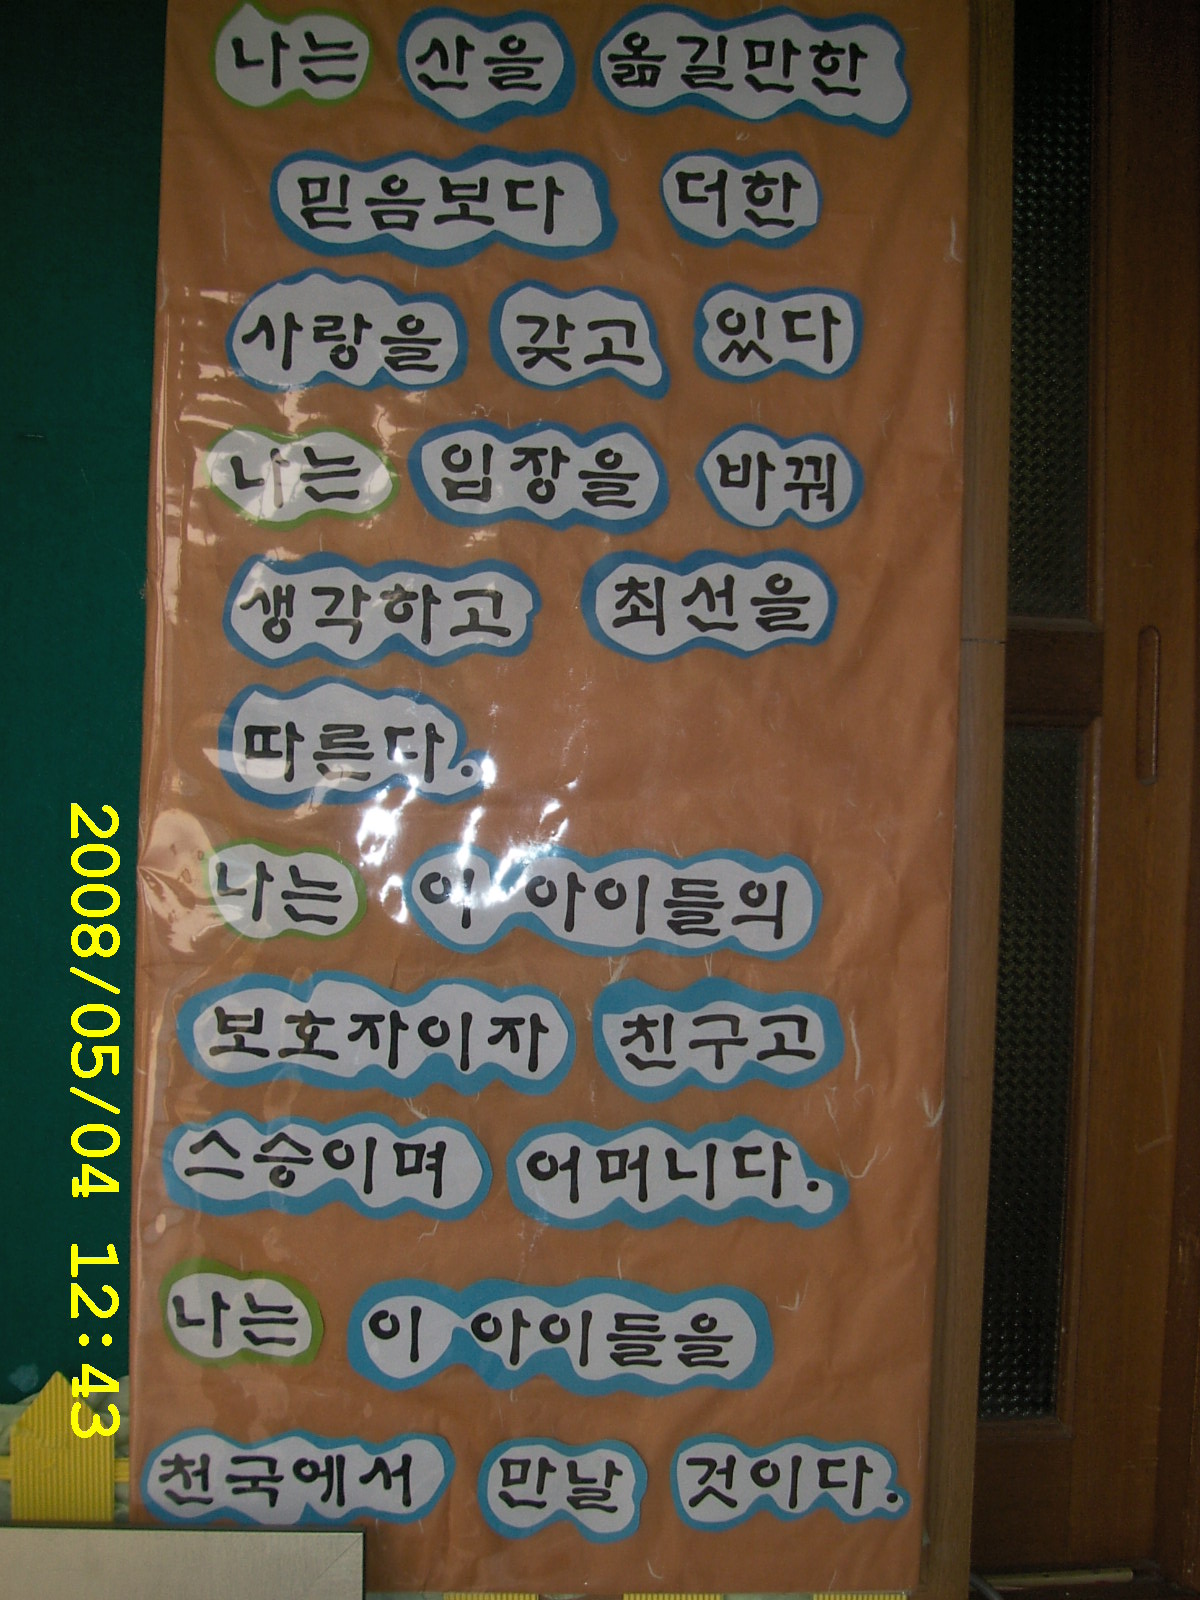 나는 산을 옮길만한
믿음보다 더한
사랑을 갖고 있다
나는 입장을 바꿔
생각하고 최선을
따른다.
나는 이 아이들의
보호자이자 친구고
스승이며 어머니다.
나는 이 아이들을
천국에서 만날 것이다.
2008/05/04 12:43